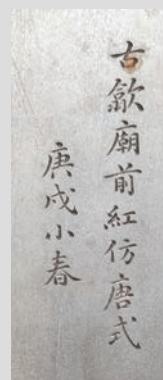 古歙廟前紅仿唐式
庚戌小春